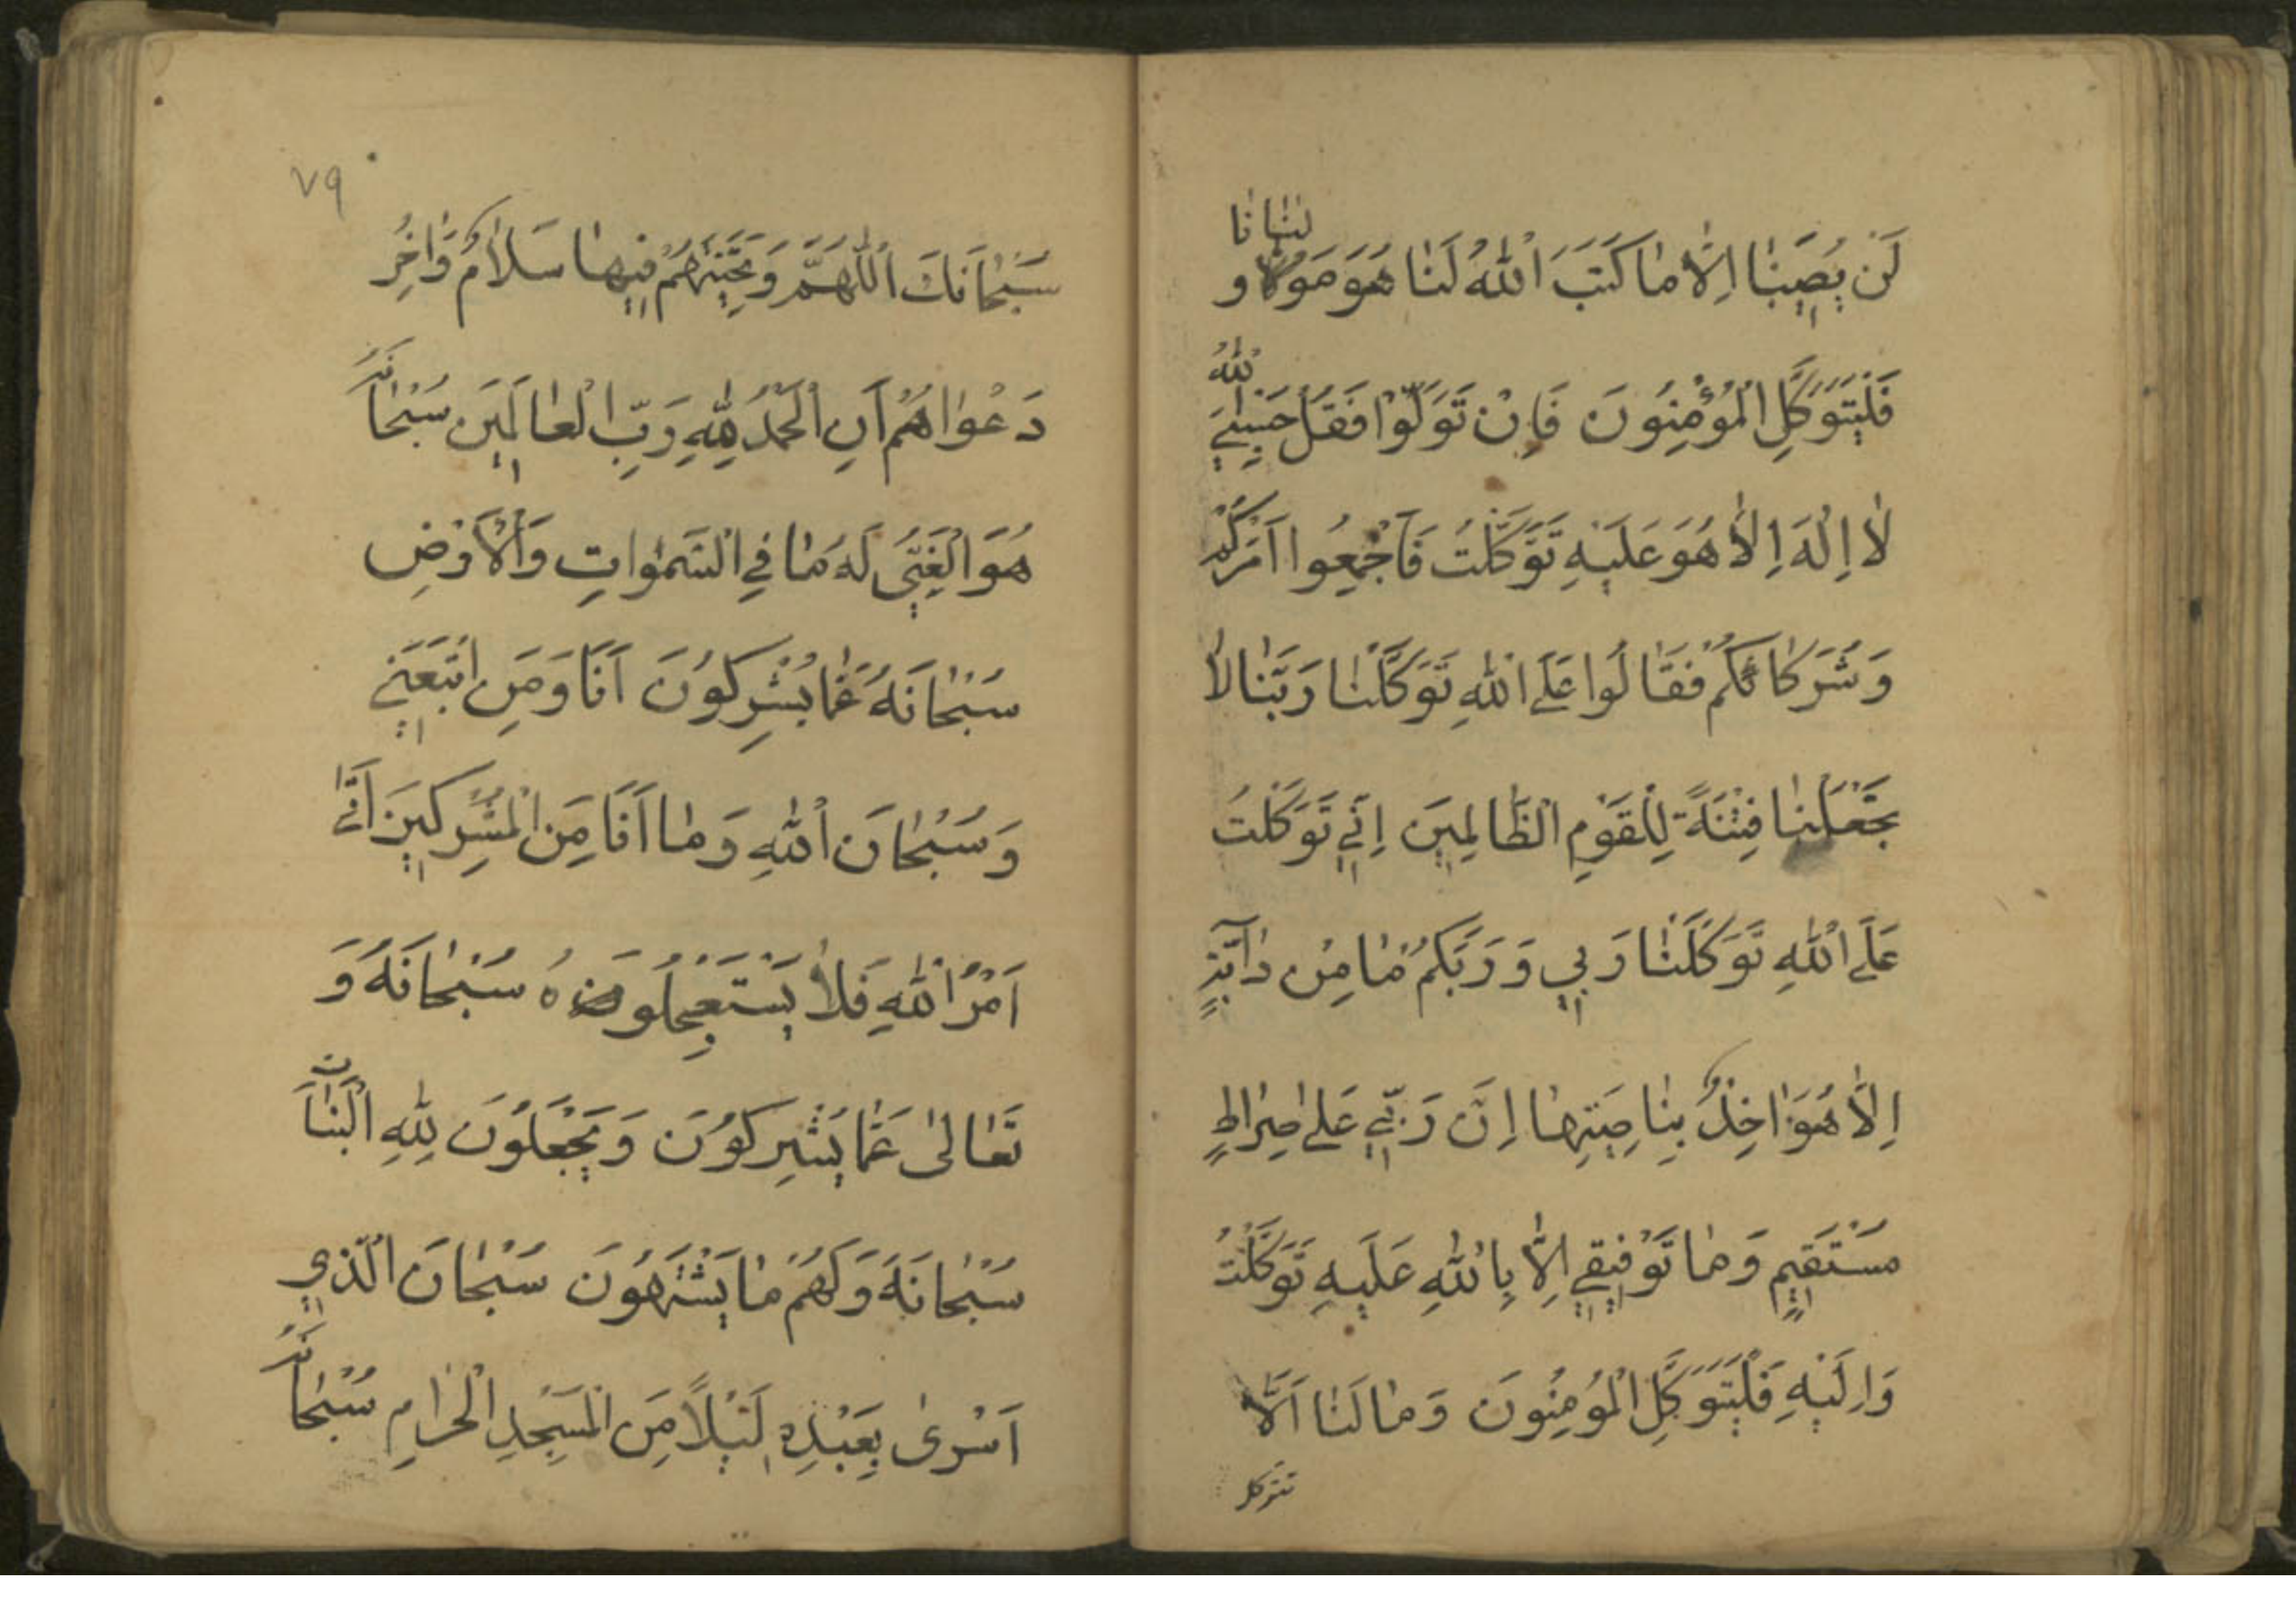 لَنْ يُصِيبَنٰا اِلّٰا مٰا كَتَبَ اللّٰهُ لَنٰا هُوَ مَوْلٰانٰا وَ
فَلْيَتَوَكَّلِ الْمُؤْمِنُونَ فَاِنْ تَوَلَّوْا فَقُلْ حَسْبِيَ اللّٰهُ
لٰا اِلٰهَ اِلّٰا هُوَ عَلَيْهِ تَوَكَّلْتُ فَاَجْمِعُوا اَمْرَكُمْ
وَشُرَكٰاءَكُمْ فَقٰالُوا عَلَى اللّٰهِ تَوَكَّلْنٰا رَبَّنٰا لٰا
تَجْعَلْنٰا فِتْنَةً لِلْقَوْمِ الظّٰالِمِينَ اِنِّي تَوَكَّلْتُ
عَلَى اللّٰهِ تَوَكَّلْنٰا رَبِّي وَرَبِّكُمْ مٰا مِنْ دٰابَّةٍ
اِلّٰا هُوَ اٰخِذٌ بِنٰاصِيَتِهٰا اِنَّ رَبِّي عَلىٰ صِرٰاطٍ
مُسْتَقِيمٍ وَمٰا تَوْفِيقِي اِلّٰا بِاللّٰهِ عَلَيْهِ تَوَكَّلْتُ
وَاِلَيْهِ فَلْيَتَوَكَّلِ الْمُؤْمِنُونَ وَمٰا لَنٰا اَلّٰا
نتوكل
٧٩
سُبْحٰانَكَ اللّٰهُمَّ وَتَحِيَّتُهُمْ فِيهٰا سَلٰامٌ وَاٰخِرُ
دَعْوٰاهُمْ اَنِ الْحَمْدُ لِلّٰهِ رَبِّ الْعٰالَمِينَ سُبْحٰانَهُ
هُوَ الْغَنِيُّ لَهُ مٰا فِي السَّمٰوٰاتِ وَالْاَرْضِ
سُبْحٰانَهُ عَمّٰا يُشْرِكُونَ اَنَا وَمَنِ اتَّبَعَنِي
وَسُبْحٰانَ اللّٰهِ وَمٰا اَنَا مِنَ الْمُشْرِكِينَ اَتىٰ
اَمْرُ اللّٰهِ فَلٰا يَسْتَعْجِلُونَ هُ سُبْحٰانَهُ وَ
تَعٰالىٰ عَمّٰا يُشْرِكُونَ وَيَجْعَلُونَ لِلّٰهِ الْبَنٰاتِ
سُبْحٰانَهُ وَلَهُمْ مٰا يَشْتَهُونَ سُبْحٰانَ الَّذِي
اَسْرىٰ بِعَبْدِهِ لَيْلًا مِنَ الْمَسْجِدِ الْحَرٰامِ سُبْحٰانَهُ